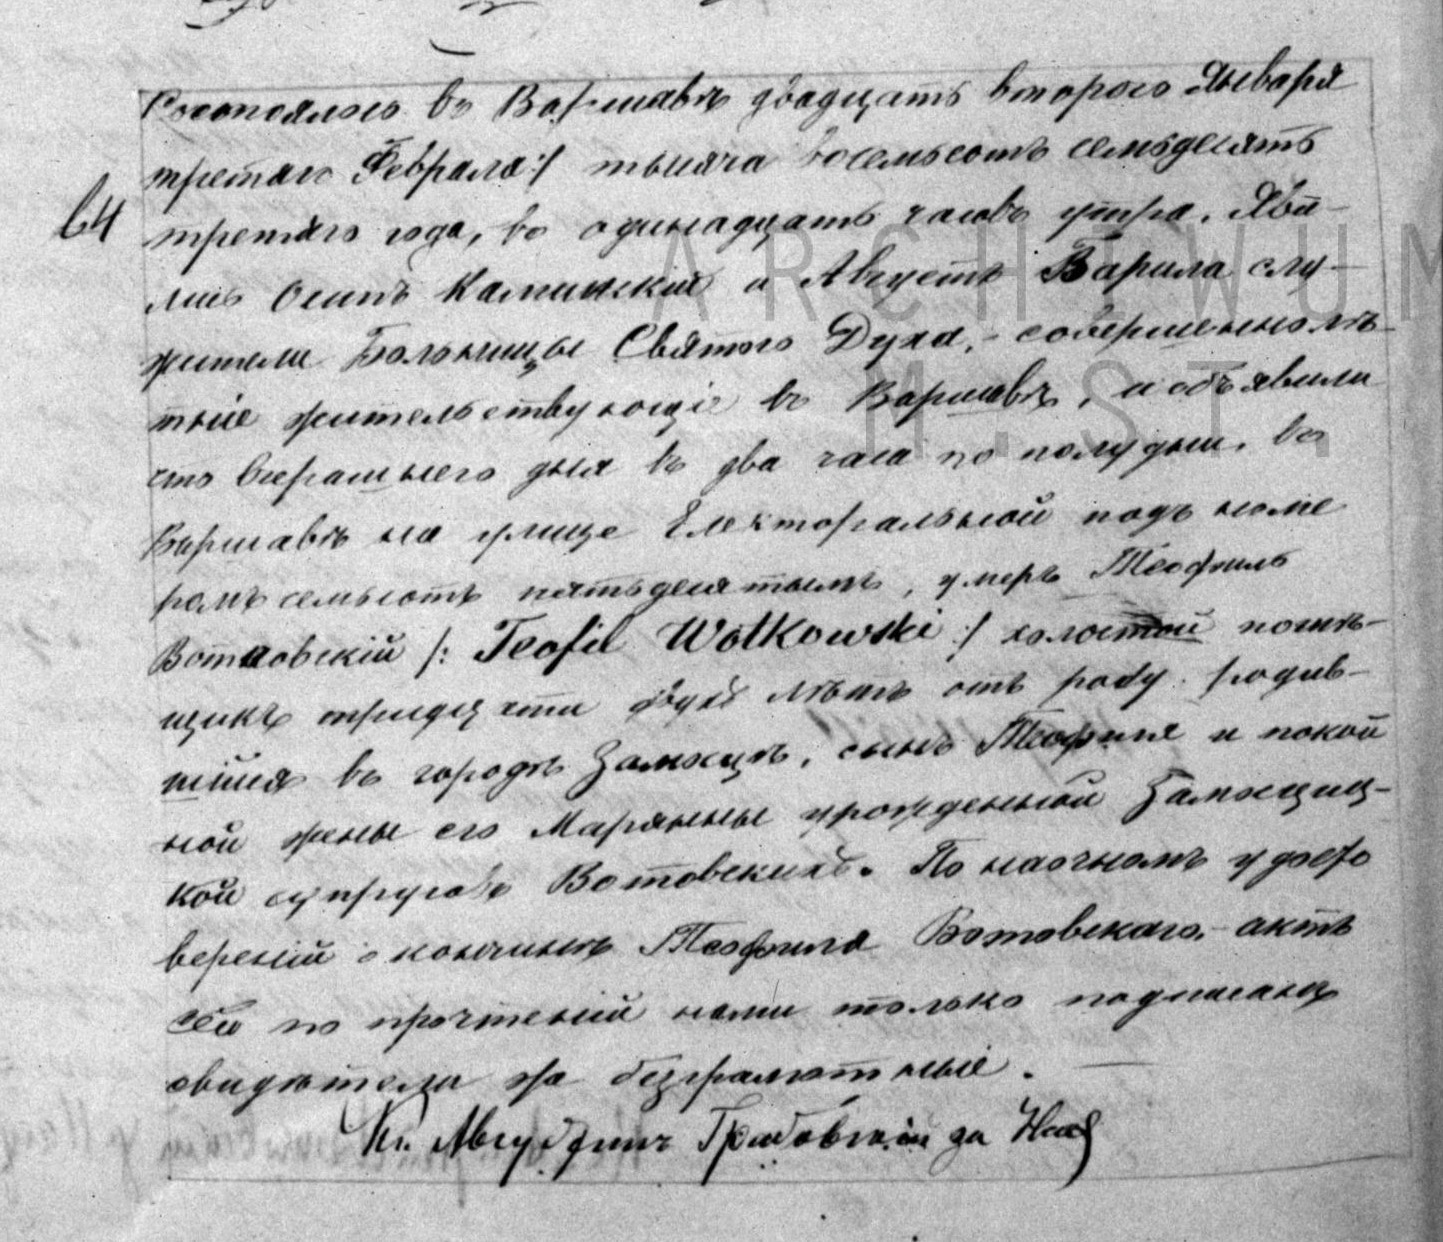 64
Состоялось въ Варшавѣ двадцать втораго Января
третяго Февраля :/ тысяча восемьсотъ семьдесятъ
третяго года, въ одинадцать часовъ утра. Яви-
лись Осипъ Каминскій и Августъ Барила слу-
жители Больницы Святого Духа, - совершеннолѣ-
тные жительствующіе въ Варшавѣ, и объявили
что вчерашнего дня въ два часа по полудни, въ
Варшавѣ на улице Електоральной подъ номе
ромъ семьсотъ пятьдесятымъ, умеръ Теофиль
Вотковскій /: Teofil Wotkowski :/ холостой
щикъ тридцати двухъ лѣтъ отъ роду родив-
шійся въ городѣ Замосцѣ, сынъ Теофиля и покой
ной жены его Марянны урожденной Замосциц-
кой супруговъ Вотовскихъ. По наочномъ удосто
вереніи о кончинѣ Теофиля Вотовскаго, - актъ
сей по прочтеніи нами только подписанъ
свидѣтели же безграмотные. —
Кс. Августинъ за
ARCHIWUM
M.ST.